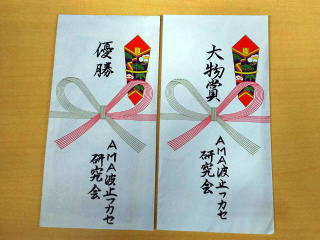 優勝
AMA波止フカセ
研究会
大物賞
AMA波止フカセ
研究会